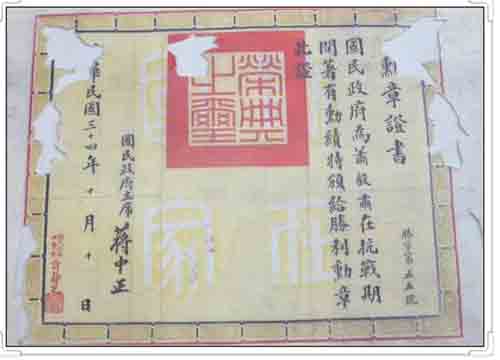 勳章證書
勝字第五五號
國民政府為蕭毅肅在抗戰期
間著有勳績特頒給勝利勳章
此證
榮典之璽
國民政府主席 蔣中正
華民國三十四年十月十日